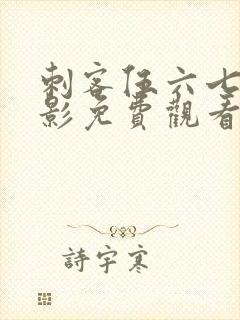 刺客伍六七
影免費觀看
詩宇寒